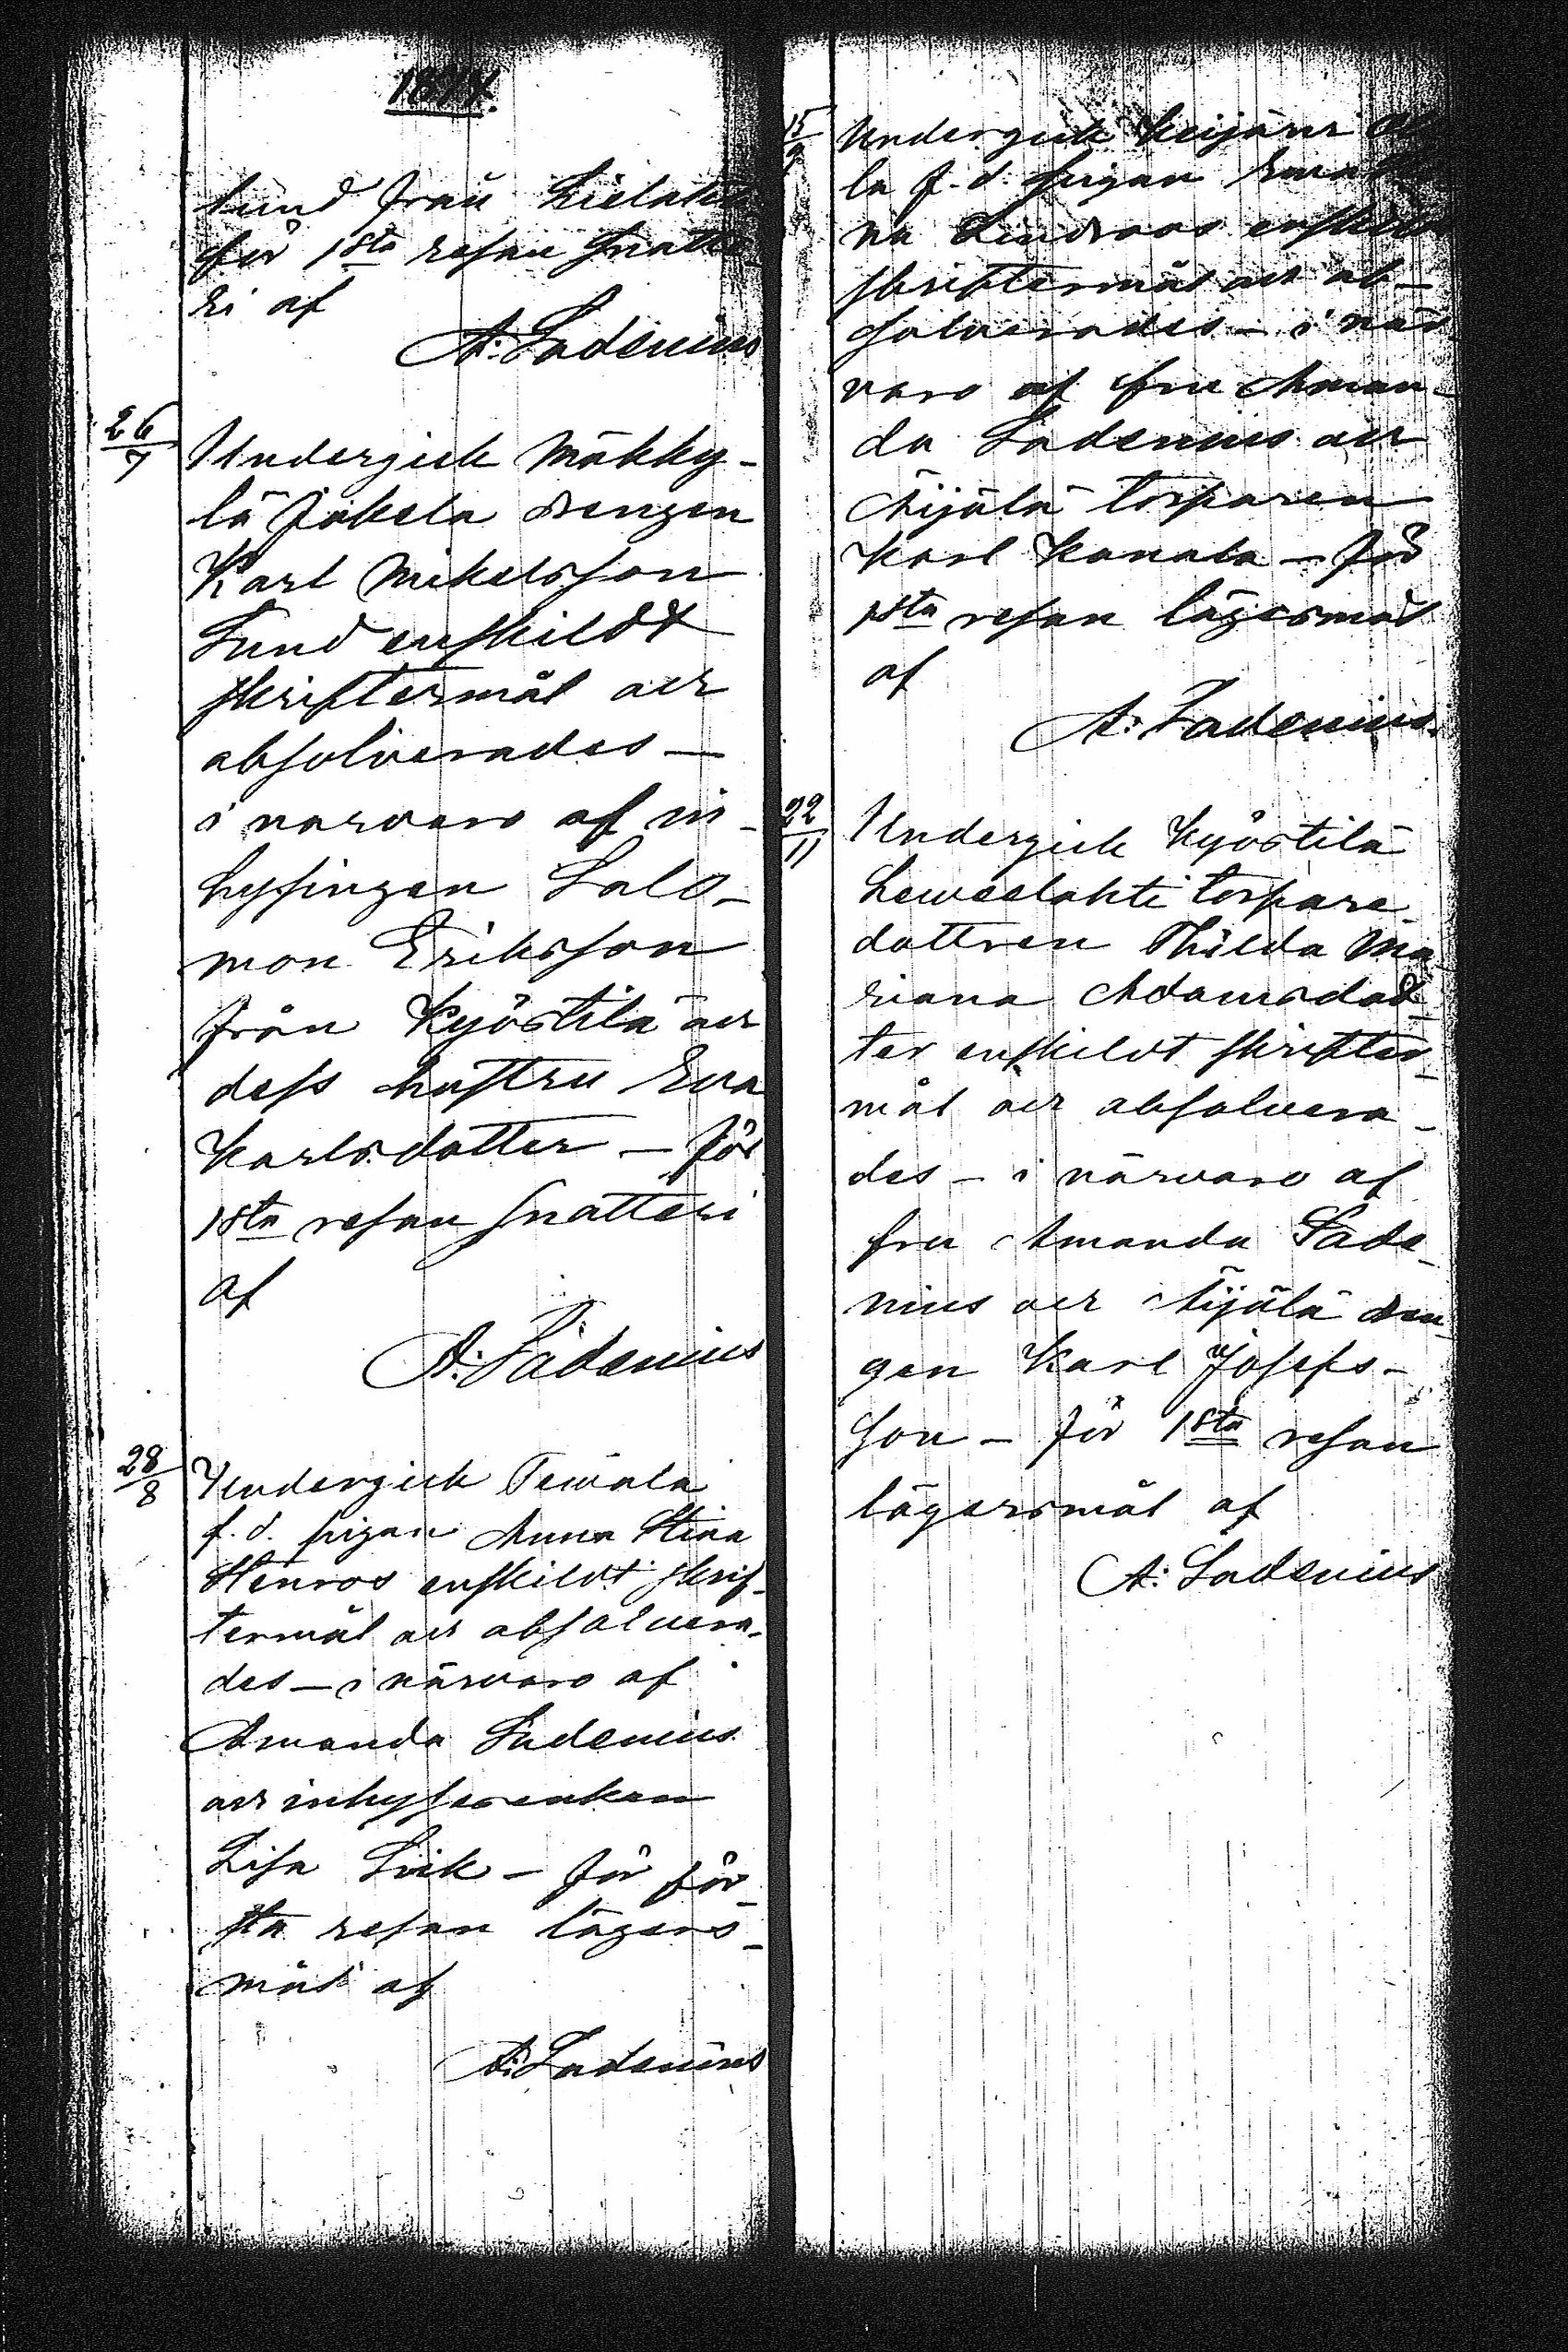 1874.
lund från Lielaht
för 1sta resan snatte
ri af
A: Ladenius
26/7
Undergick Mäkky-
lä Jokela drengen
Karl Mikelsson
Lund enskildt
skriftermål och
absolverades —
i narvaro af in-
hysingen Salo-
mon Eriksson
från Kyöstilä och
dess hustru Eva
Karlsdotter — för
1sta resan snatteri
af
A: Ladenius
28/8
Undergick
f. d. pigan Anna Stina
Henros enskildt skrif-
termål och absolvera-
des — i närvaro af
Amanda Ladenius
och inhyses enkan
Lisa — för för-
sta resan lägers-
mål af
A: Ladenius
15/9
Undergick
la f. d. pigan
na Lindroos enskildt
skriftermål och ab-
solverades — i när
varo af fru Aman-
da Ladenius och
Äijälä torparen
Karl Kanala — för
1sta resan lägersmål
af
A: Ladenius.
22/11
Undergick Kyöstilä
torpare-
dottren Thilda Ma
riana Adamsdot-
ter enskildt skrifter-
mål och absolvera-
des — i närvaro af
fru Amanda Lade-
nius och Äijälä dren-
gen Karl Josefs-
son — för 1sta resan
lägersmål af
A: Ladenius